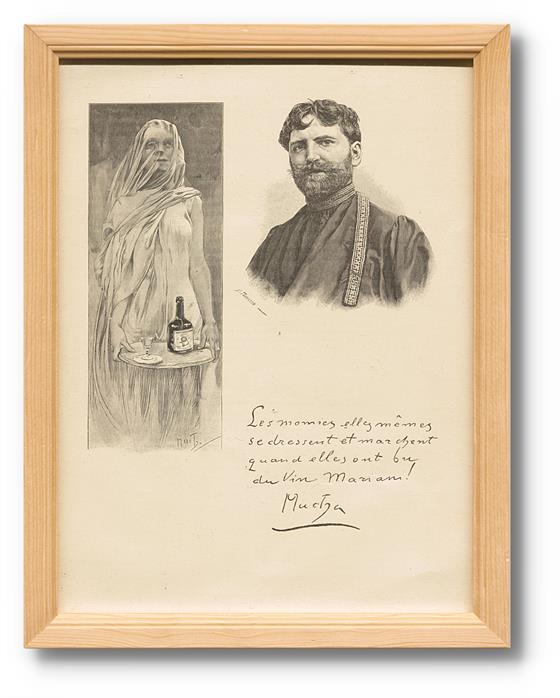 Mucha
Les momies elles mêmes
se dressent et marchent
quand elles ont bu
du Vin Mariani!
Mucha